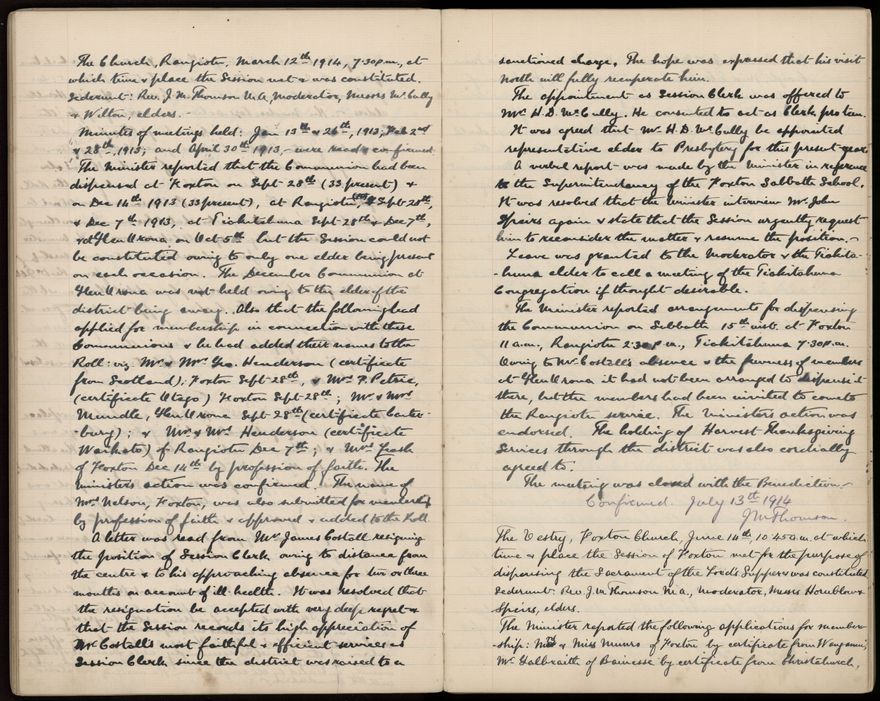 The Church, Rangiotu, March 12th 1914, 7.30 p.m., at
which time & place the Session met & was constituted.
Sederunt: Rev. J. M. Thomson M.A, Moderator, Messrs McCully
& Wilton, elders. -
Minutes of meetings held: Jan 13th & 26th, 1913, Feb 2nd
& 28th, 1913, and April 30th 1913, - were read & confirmed
The Minister reported that the Communion had been
dispensed at Foxton on Sept 28th (33 present) &
on Dec 14th 1913 (33 present), at Rangiotu, Sept 28th,
& Dec 7th 1913, at Tiakitahuna Sept 28th & Dec 7th,
& at Glen Oroua on Oct 5th but the Session could not
be constituted owing to only one elder being present
on each occasion. The December Communion at
Glen Oroua was not held owing to the elder of the
district being away. Also that the following had
applied for membership in connection with these
Communions & he had added their names to the
Roll: viz. Mr & Mrs Geo. Henderson (certificate
from Scotland), Foxton Sept 28th, & Mrs P. Petrie,
(certificate Otago) Foxton Sept 28th; Mr & Mrs
Mundle, Glen Oroua Sept 28th (certificate Canter-
-bury); & Mr & Mrs Henderson (certificate
Waikato) of Rangiotu Dec 7th; & Mrs
of Foxton Dec 14th by profession of faith. The
Ministers action was confirmed. The name of
Mrs Nelson, Foxton, was also submitted for membership
by profession of faith & approved & added to the Roll
A letter was read from Mr James Costall resigning
the position of Session Clerk owing to distance from
the centre & to his approaching absence for two or three
months on account of ill-health. It was resolved that
the resignation be accepted with very deep regret &
that the Session records its high appreciation of
Mr Costall's most faithful & efficient services as
Session Clerk since the district was raised to a
sanctioned charge. The hope was expressed that his visit
North will fully recuperate him.
The appointment as Session Clerk was offered to
Mr H. D. McCully. He consented to act as Clerk pro tem.
It was agreed that Mr H. D. McCully be appointed
representative elder to Presbytery for this present year.
A verbal report was made by the Minister in reference
to the Superintendency of the Foxton Sabbath School.
It was resolved that the Minister interview Mr. John
Spiers again & state that the Session urgently request
him to reconsider the matter & resume the position. -
Leave was granted to the Moderator & the Tiakita-
-huna elder to call a meeting of the Tiakitahuna
Congregation if thought desirable.
The Minister reported arrangements for dispensing
the Communion on Sabbath 15th inst. at Foxton
11 a.m., Rangiotu 2.30 p.m., Tiakitahuna 7.30 p.m.
Owing to Mr Costall's absence & the fewness of members
at Glen Oroua it had not been arranged to dispense it
there, but the members had been invited to come to
the Rangiotu service. The Ministers action was
endorsed. The holding of Harvest Thanksgiving
Services through the district was also cordially
agreed to.
The meeting was closed with the Benediction. -
Confirmed. July 13th 1914
J M Thomson.
The Vestry, Foxton Church, June 14th, 10.45 a.m. at which
time & place the Session of Foxton met for the purpose of
dispensing the Sacrament of the Lord's Supper & was constituted
Sederunt: Rev. J. M. Thomson M.A., Moderator, Messrs Hornblow &
Spiers, elders.
The Minister reported the following applications for member-
-ship: Mrs & Miss Munro of Foxton by certificate from Wanganui,
Mr Galbraith of Bainesse by certificate from Christchurch,